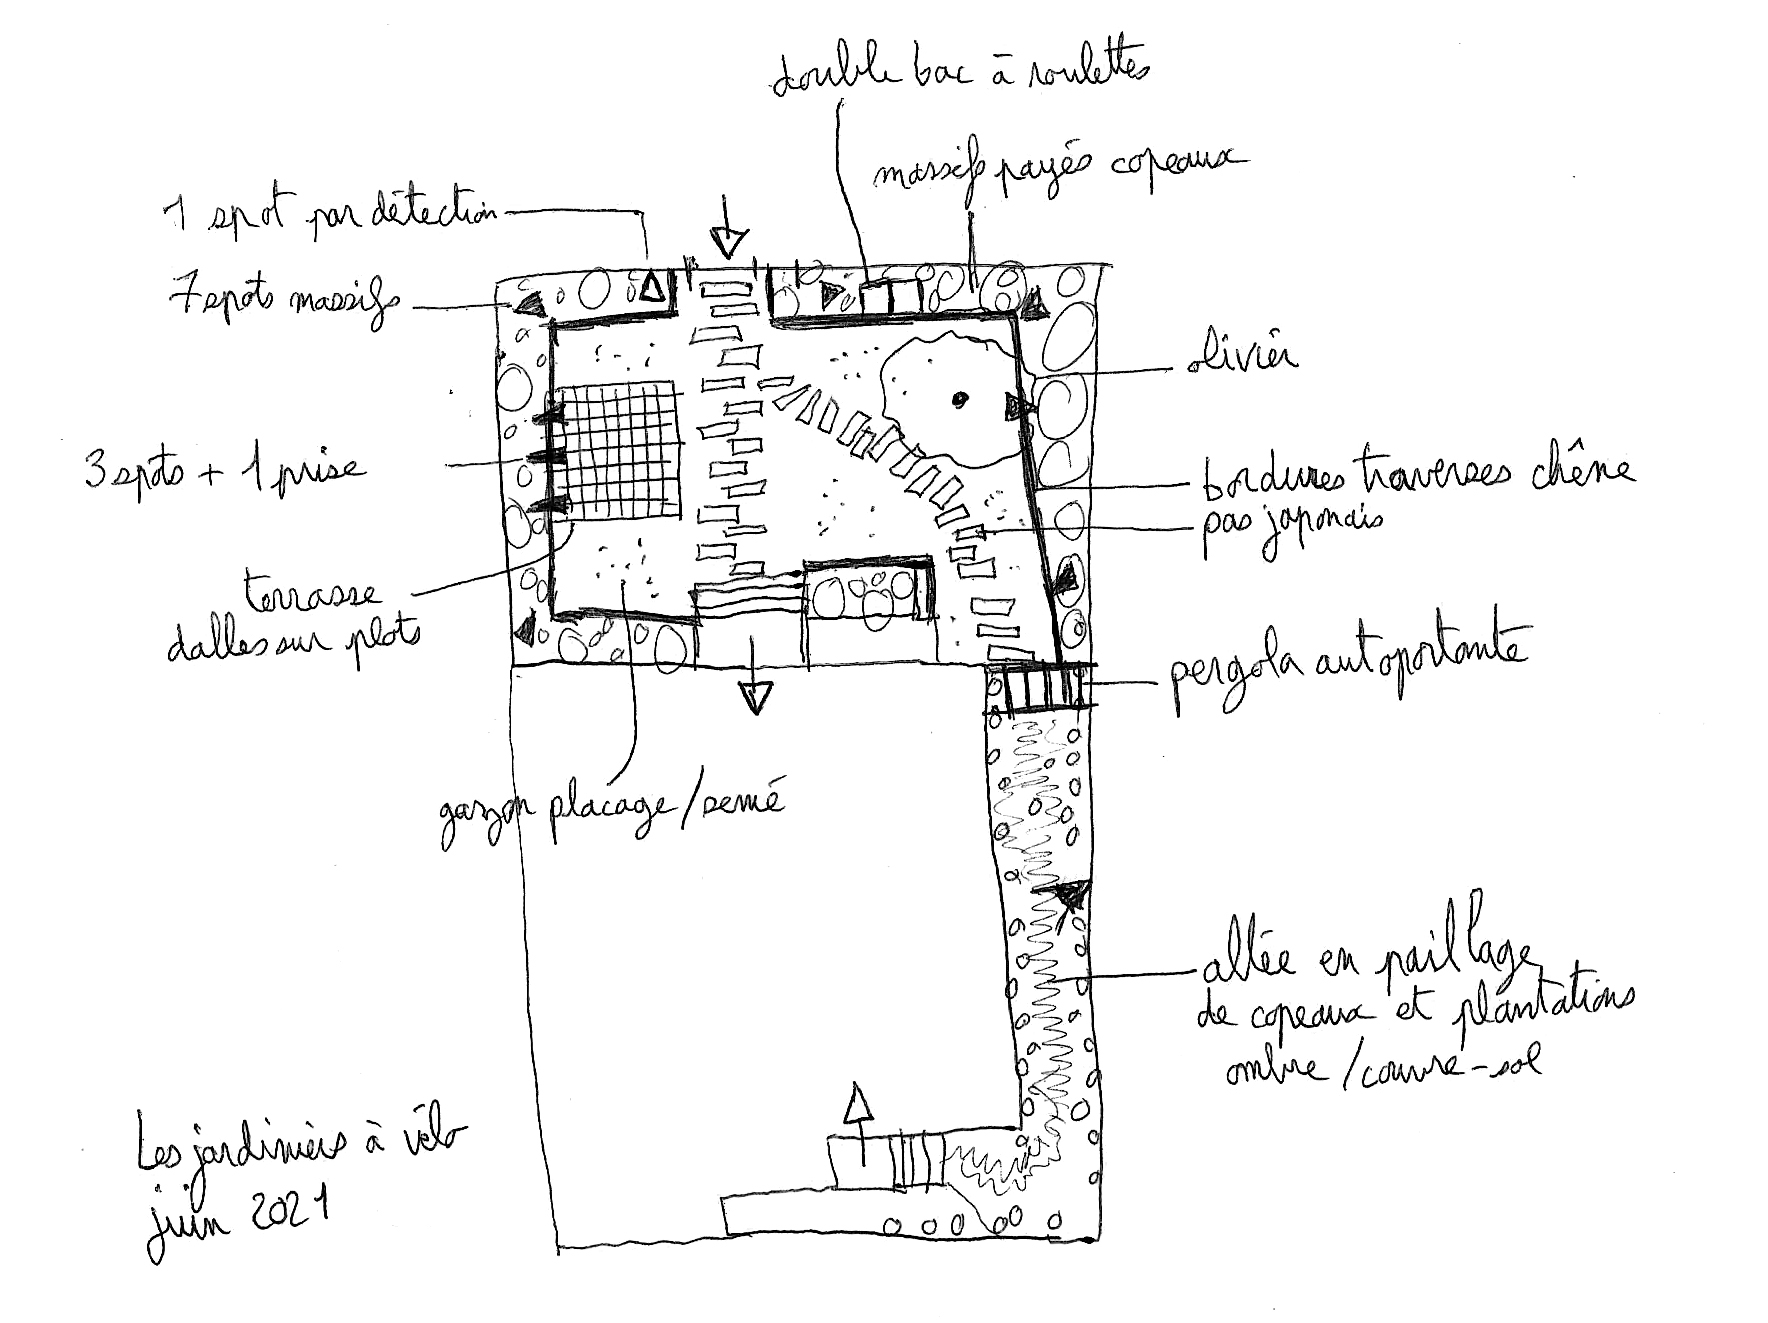 double bac à roulettes
massifs payés copeaux
1 spot par détection
7 spots massifs
olivier
3 spots + 1 prise
bordures traverses chêne
pas japonais
terrasse
dalles sur plots
pergola autoportante
gazon placage/semé
allée en paillage
de copeaux et plantations
ombre /couvre-sol
Les jardiniers à vélo
juin 2021